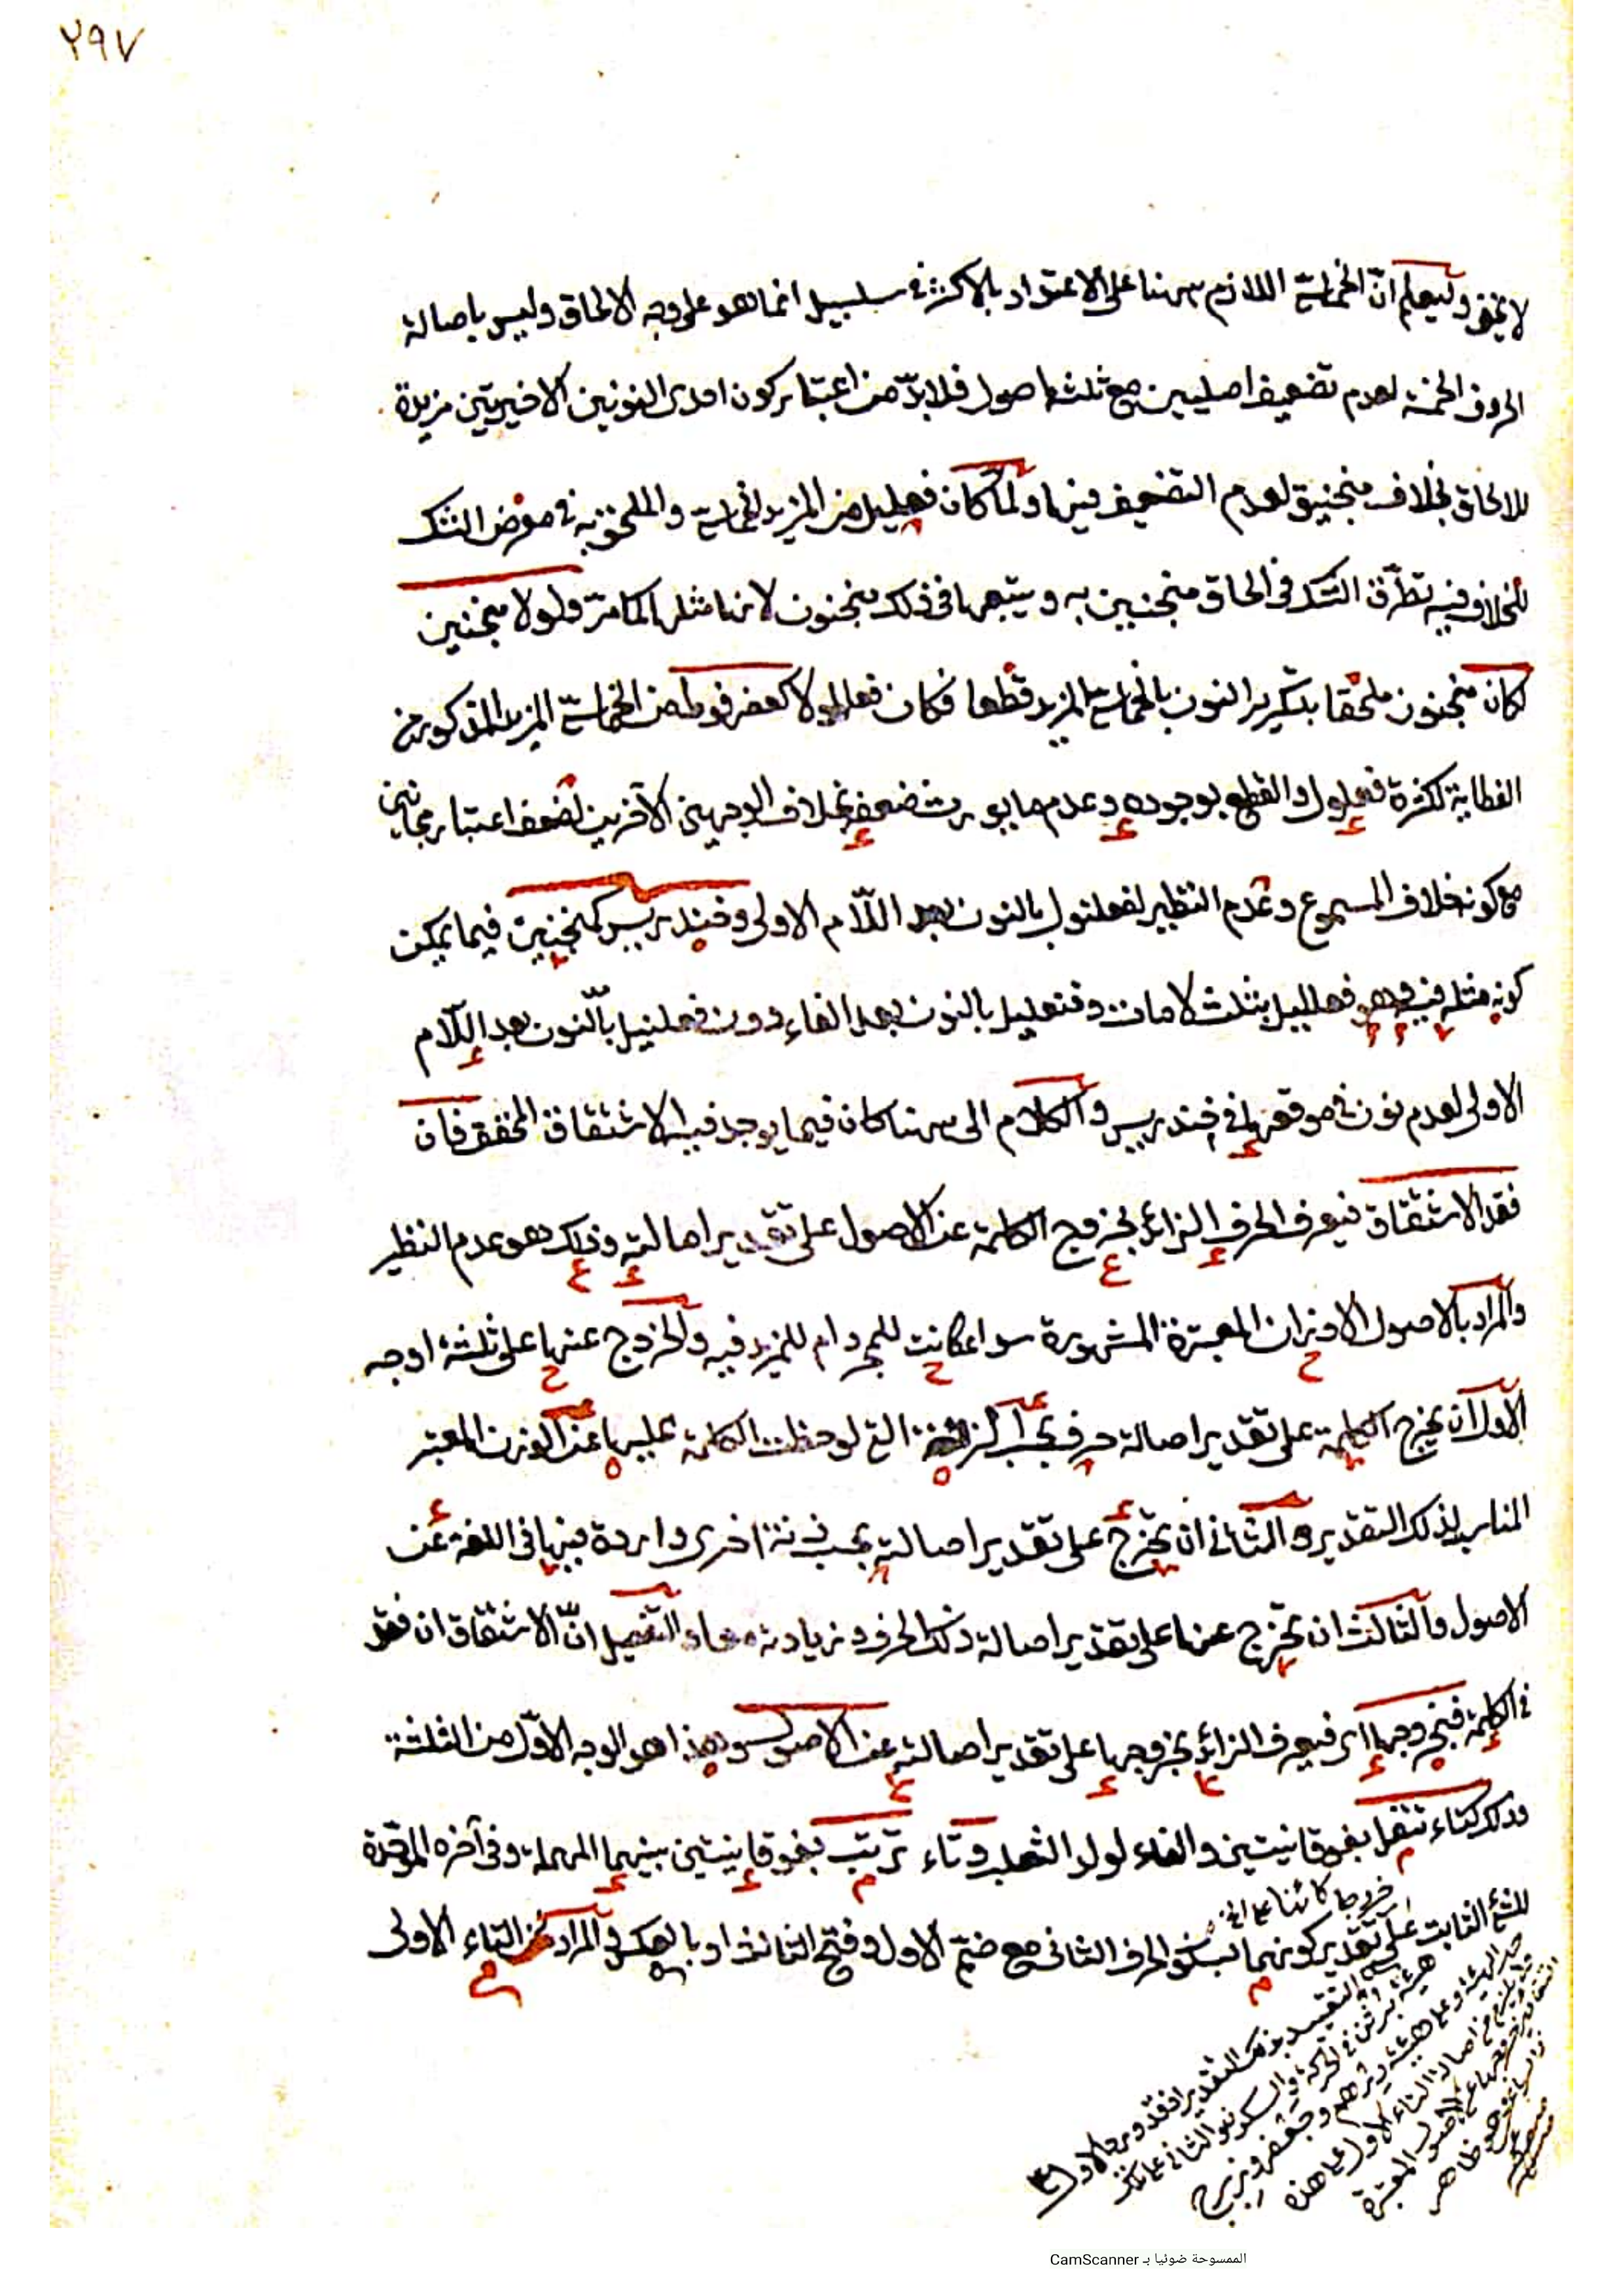 ٢٩٧
لا يخفى وليعلم انّ الخماسىّ اللازم ههنا على الاعتداد بالاكثر فى سلسبيل انما هو على وجه الالحاق وليس باصالة
الحروف الخمسة لعدم تضعيف اصليين مع ثلثة اصول فلا بدّ من اعتبار كون احدى النونين الاخيرتين مزيدة
للالحاق بخلاف منجنيق لعدم التضعيف فيها ولمّا كان فعليل من المزيد الخماسى والملحق به فى معرض الشك
للخلاف فيه تطرّق الشك فى الحاق منجنين به ويتبعها فى ذلك منجنون لانها مثلها كما مرّ ولولا منجنين
لكان منجنون ملحقا بتكرير النون بالخماسىّ المزيد قطعا فكان فعللولا كعضرفوط من الخماسىّ المزيد المذكور من
الغطاية لكثرة فعلول والقطع بوجوده وعدم ما يورث ضعفه بخلاف الوجهين الآخرين لضعف اعتبار مجانين
مع كونه خلاف المسموع وعدم النظير لفعلنول بالنون بعد اللّام الاولى وخندريس كمنجنين فيما يمكن
كونه مثله فيه وهو فعلليل بثلث لامات وفنعليل بالنون بعد الفاء دون فعلنيل بالنّون بعد اللّام
الاولى لعدم نون فى موقعها فى خندريس والكلام الى ههنا كان فيما يوجد فيه الاشتقاق المحقق فان
فقد الاشتقاق فيعرف الحرف الزائد بخروج الكلمة عن الاصول على تقدير اصالته وذلك هو عدم النظير
والمراد بالاصول الاوزان المعتبرة المشهورة سواء كانت للمجرد ام للمزيد فيه والخروج عنها على ثلثة اوجه
الاول ان يخرج الكلمة على تقدير اصالة حرف بحسب الزنة التى لوحظت الكلمة عليها عن الوزن المعتبر
المناسب لذلك التقدير والثانى ان يخرج على تقدير اصالته بحسب زنة اخرى واردة فيها فى اللغة عن
الاصول والثالث ان يخرج عنها على تقدير اصالة ذلك الحرف وزيادته معا والتفصيل انّ الاشتقاق ان فقد
فى الكلمة فبخروجها اى فيعرف الزائد بخروجها على تقدير اصالته عن الاصول وهذا هو الوجه الاوّل من الثلثة
وذلك كتاء تتفل بفوقانيتين والفاء لولد الثعلب وتاء ترتب بفوقانيتين بينهما المهملة وفى آخره الموحّدة
للشئ الثابت على تقدير كونهما بسكون الحرف الثانى مع ضمّ الاول وفتح الثالث او بالعكس والمراد من التاء الاولى
الممسوحة ضوئيا بـ CamScanner